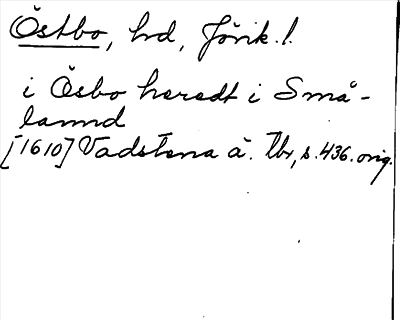 Östbo, hd, Jönk. l.
i Ösbo heredt i Små-
lannd
[1610] Vadstena ä. Tbr, s. 436. orig.